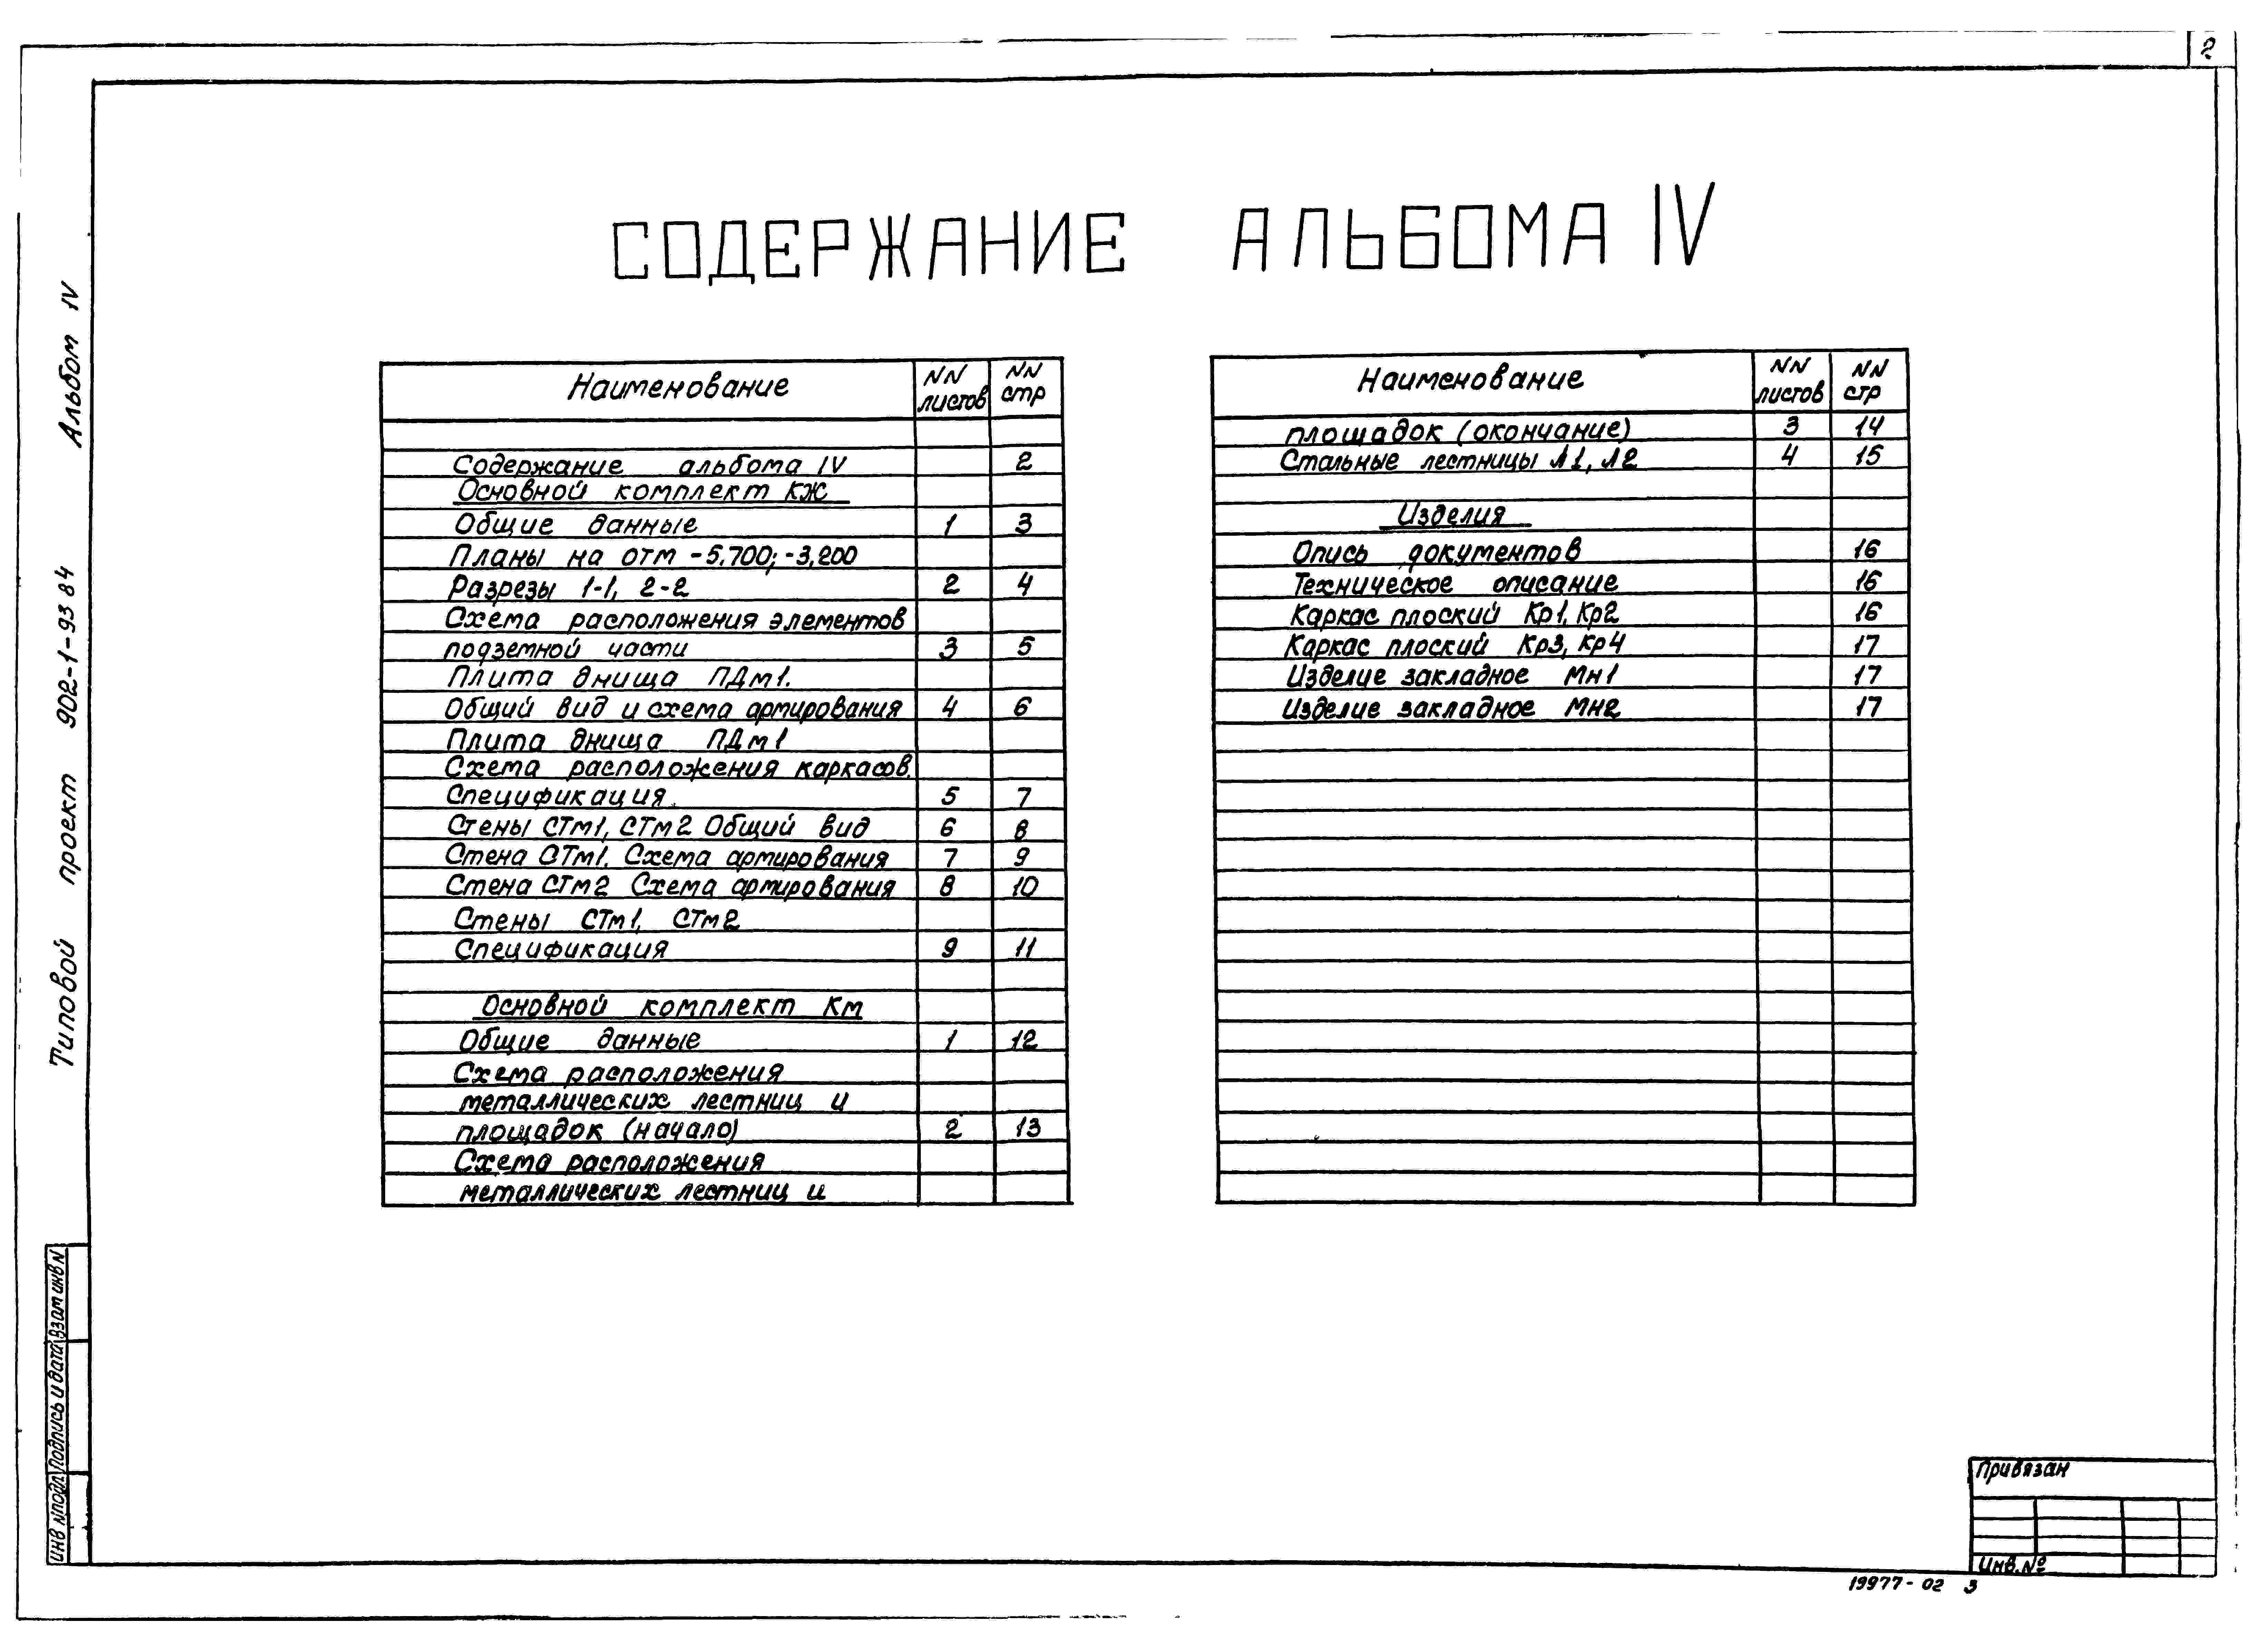 2
СОДЕРЖАНИЕ АЛЬБОМА IV
Наименование NN листов NN стр
Содержание альбома IV 2
Основной комплект КЖ
Общие данные 1 3
Планы на отм -5.700; -3,200
Разрезы 1-1, 2-2 2 4
Схема расположения элементов
подземной части 3 5
Плита днища ПДм1.
Общий вид и схема армирования 4 6
Плита днища ПДм1
Схема расположения каркасов.
Спецификация. 5 7
Стены СТм1, СТм2 Общий вид 6 8
Стена СТм1. Схема армирования 7 9
Стена СТм2 Схема армирования 8 10
Стены СТм1, СТм2
Спецификация 9 11
Основной комплект Км
Общие данные 1 12
Схема расположения
металлических лестниц и
площадок (начало) 2 13
Схема расположения
металлических лестниц и
Наименование NN листов NN стр
площадок (окончание) 3 14
Стальные лестницы Л1, Л2 4 15
Изделия
Опись документов 16
Техническое описание 16
Каркас плоский Кр1, Кр2 16
Каркас плоский Кр3, Кр4 17
Изделие закладное Мн1 17
Изделие закладное Мн2 17
Типовой проект 902-1-93 84 Альбом IV
Инв N подл Подпись и дата Взам инв N
Привязан
Инв. №
19977-02 3